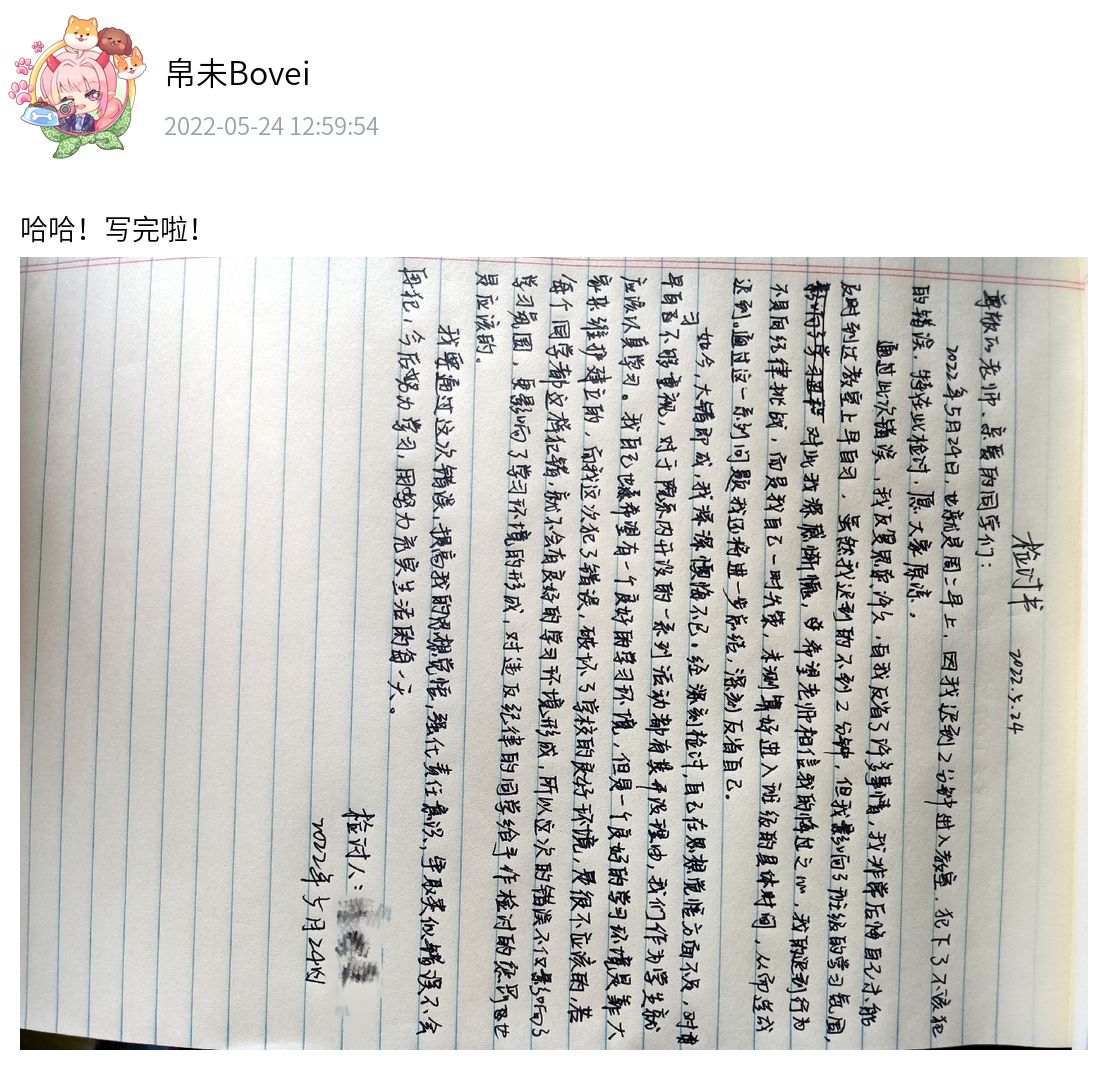 帛未Bovei
2022-05-24 12:59:54
哈哈！写完啦！
检讨书 2022.5.24
尊敬的老师、亲爱的同学们：
2022年5月24日，也就是周二早上，因我迟到2分钟进入教室，犯下了不该犯
的错误，特在此检讨，愿大家原谅。
通过此次错误，我反复思索许久，自我反省了许多事情，我非常后悔自己未能
及时到达教室上早自习，虽然我迟到的不到2分钟，但我影响了班级的学习氛围，
对此我深感惭愧，希望老师相信我的悔过之心，我的迟到行为
不是向纪律挑战，而是我自己一时失策，未测算好进入班级的具体时间，从而造成
迟到。通过这一系列问题我还将进一步总结，深刻反省自己。
如今，大错即成，我深深懊悔不已。经深刻检讨，自己在思想觉悟方面不及，对
早自习不够重视，对于院系内开设的一系列活动都有其开设理由，我们作为学生就
应该认真学习。我自己也希望有一个良好的学习环境，但是一个良好的学习环境是靠大
家来维护建立的，而我这次犯了错误，破坏了学校的良好环境，是很不应该的，若
每个同学都这样犯错，就不会有良好的学习环境形成，所以这次的错误不仅影响了
学习氛围，更影响了学习环境的形成，对违反纪律的同学给予作检讨的惩罚也
是应该的。
我要通过这次错误，提高我的思想觉悟，强化责任意识，争取类似错误不会
再犯，今后努力学习，用努力充实生活的每一天。
检讨人：
2022年5月24日